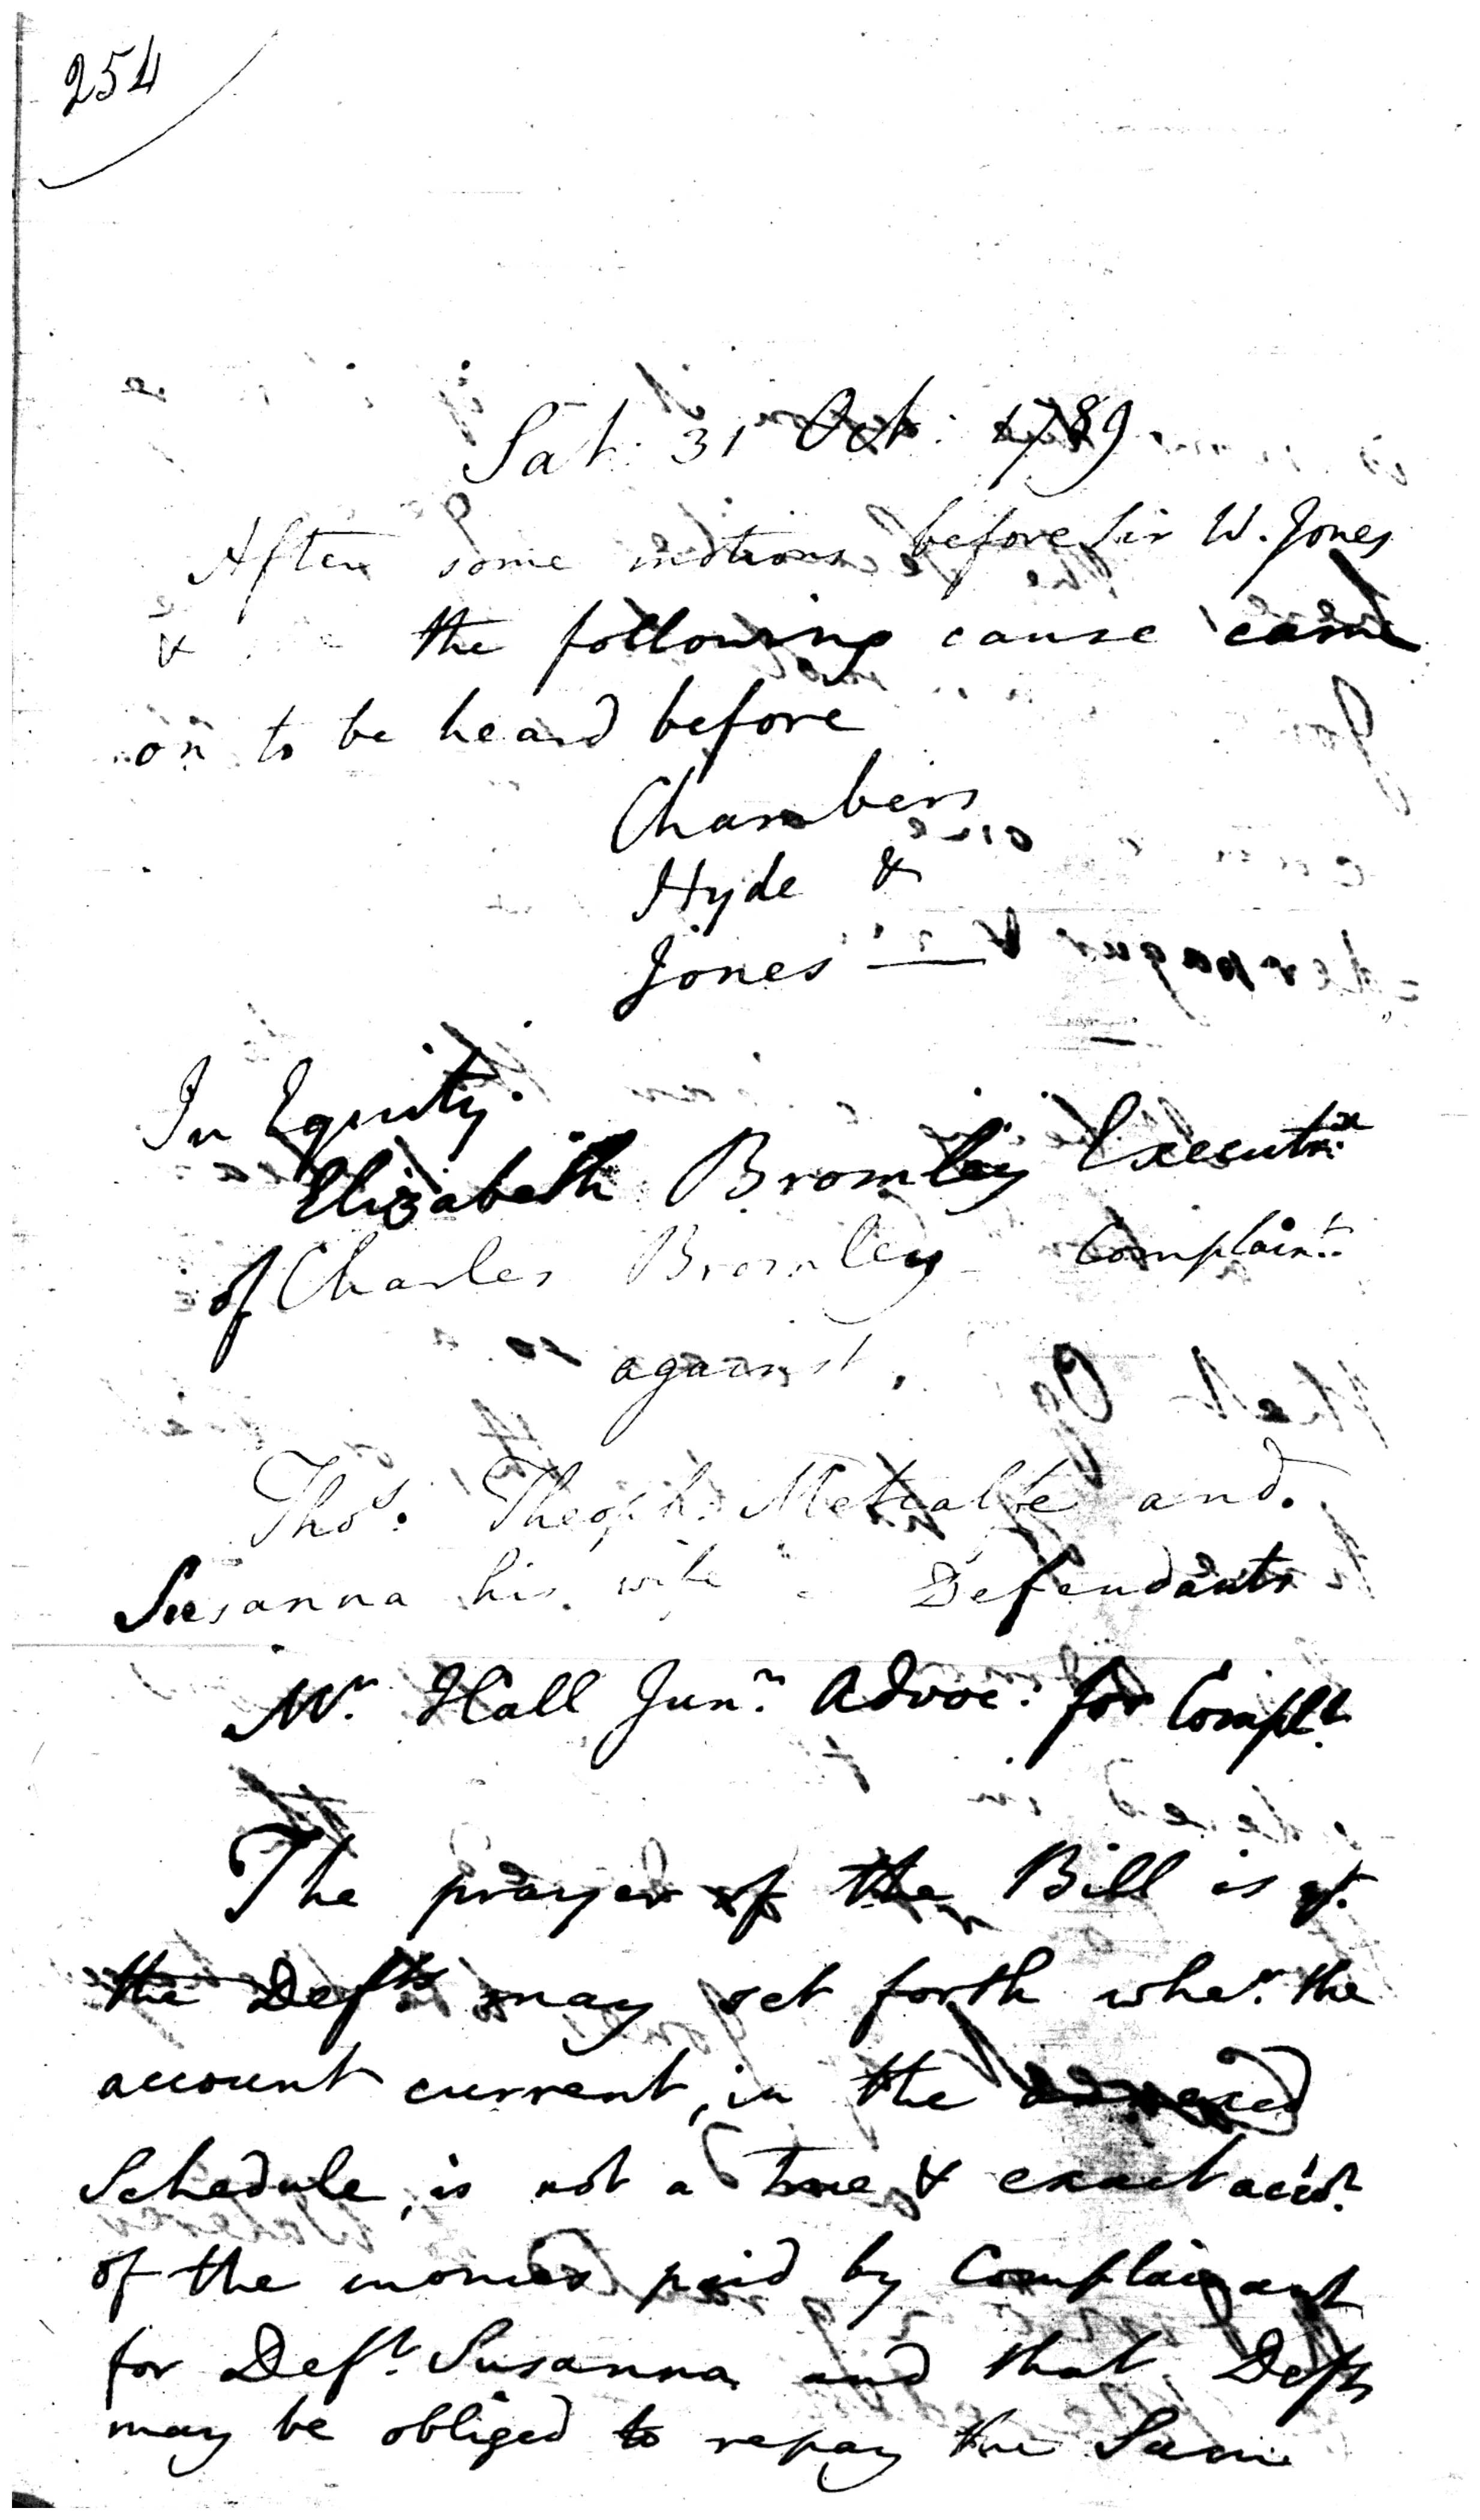 254
Sat. 31 Oct. 1789
After some motions before Sir W. Jones
& the following cause came
on to be heard before
Chambers
Hyde &
Jones —
In Equity.
Elizabeth Bromley Executrix
of Charles Bromley Complaint.
against.
Thos. Theoph. Metcalfe and
Susanna his wife - Defendants
Mr. Hall Junr. Advoc. for Complt.
The prayer of the Bill is yt.
the Defts. may set forth wher. the
account current, in the annexed
Schedule, is not a true & exact accot.
of the monies paid by Complainant
for Deft. Susanna and that Defts
may be obliged to repay the Same